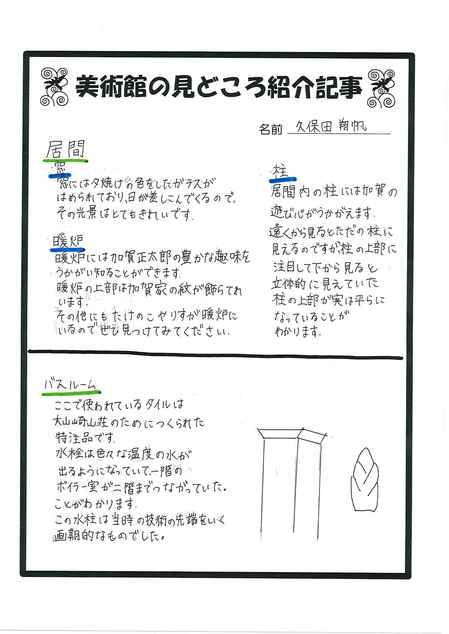 美術館の見どころ紹介記事
名前 久保田 翔帆
居間
窓
窓には夕焼けの色をしたガラスが
はめられており、日が差しこんでくるので、
その光景はとてもきれいです.
暖炉
暖炉には加賀正太郎の豊かな趣味を
うかがい知ることができます.
暖炉の上部は加賀家の紋が飾られて
います.
その他にもたけのこやりすが暖炉に
いるのでぜひ見つけてみてください.
柱
居間内の柱には加賀の
遊び心がうかがえます.
遠くから見るとただの柱に
見えるのですが柱の上部に
注目して下から見ると
立体的に見えていた
柱の上部が実は平らに
なっていることが
わかります.
バスルーム
ここで使われているタイルは
大山崎山荘のためにつくられた
特注品です.
水栓は色々な温度の水が
出るようになっていて、一階の
ボイラー室が二階までつながっていた.
ことがわかります.
この水栓は当時の技術の先端をいく
画期的なものでした.